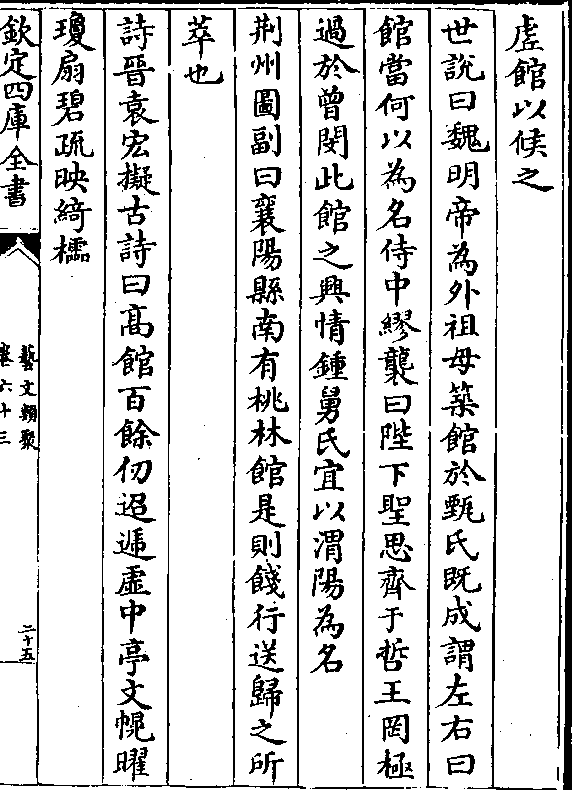 虛館以候之
世說曰魏明帝為外祖母築館於甄氏既成謂左右曰
館當何以為名侍中繆襲曰陛下聖思齊于哲王罔極
過於曾閔此館之興情鍾舅氏宜以渭陽為名
荆州圖副曰襄陽縣南有桃林館是則餞行送歸之所
萃也
詩晉袁宏擬古詩曰髙館百餘仞迢遞虛中亭文幌曜
瓊扇碧疏映綺櫺
欽定四庫全書
藝文類聚
卷六十三
二十五